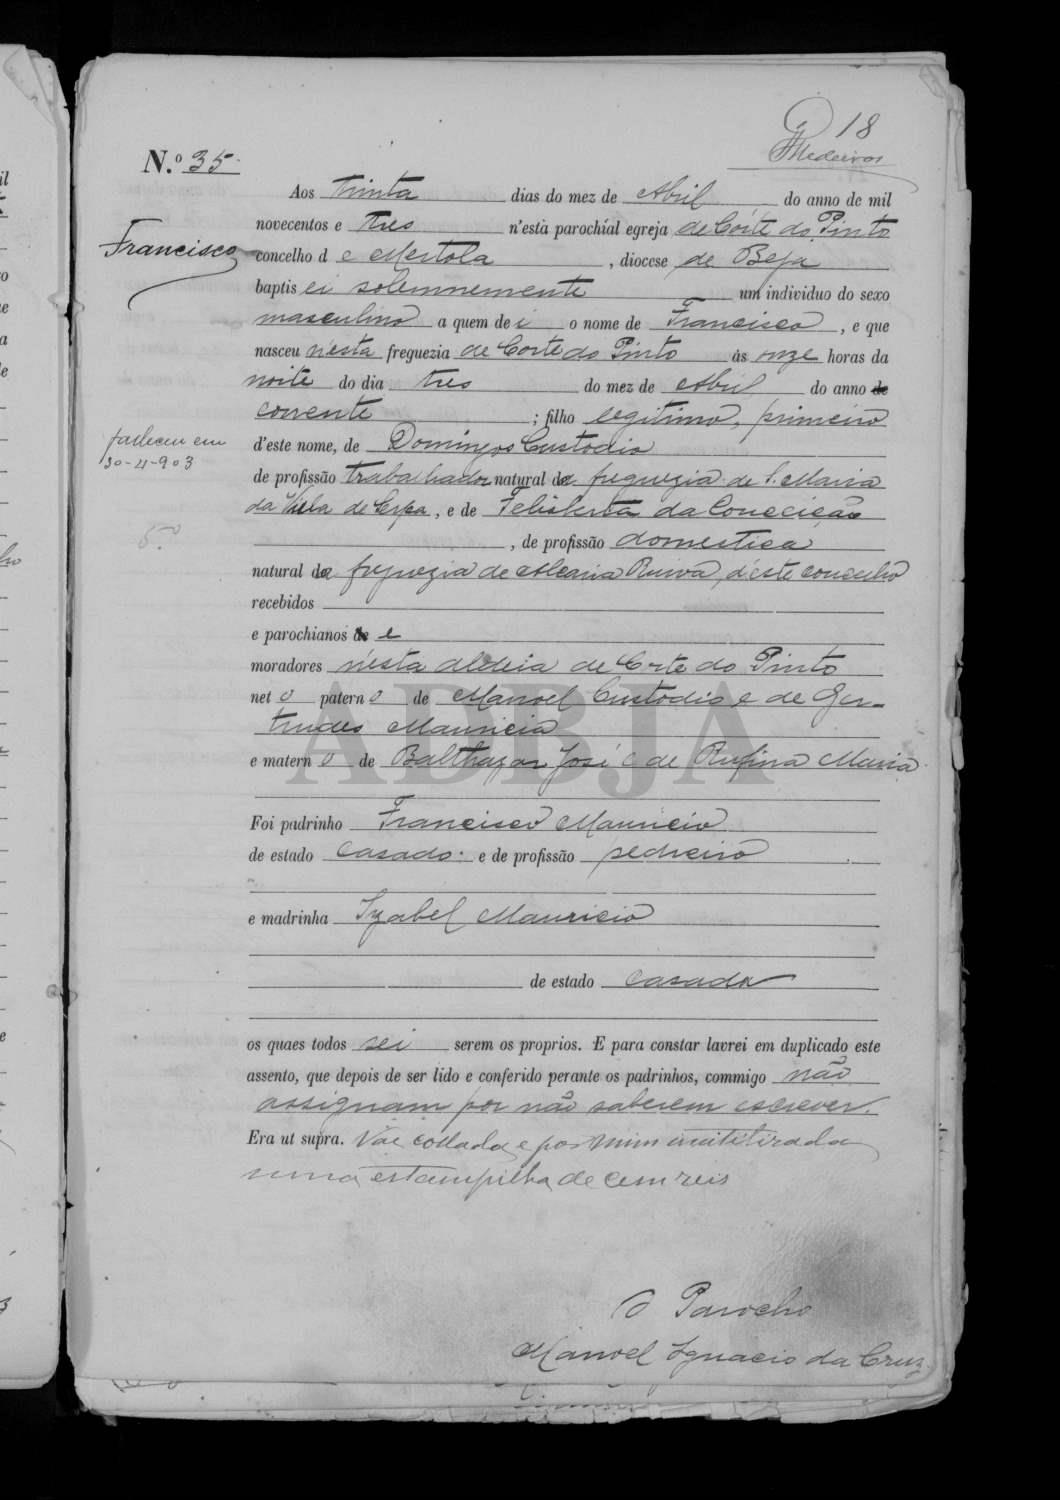 18
Medeiros
N.º 35
Aos trinta dias do mez de Abril do anno de mil
novecentos e tres n'esta parochial egreja de Córte do Pinto
Francisco
concelho de Mertola, diocese de Beja
baptisei solemnemente um individuo do sexo
masculino a quem dei o nome de Francisco, e que
nasceu n'esta freguezia de Corte do Pinto ás onze horas da
noite do dia tres do mez de Abril do anno de
corrente; filho legitimo, primeiro
falleceu em
30-4-903
d'este nome, de Domingos Custodio
de profissão trabalhador natural da freguezia de S. Maria
da Villa de Serpa, e de Felisberta da Conceição
5.º
, de profissão domestica
natural da freguezia de Alcaria Ruiva, d'este concelho
recebidos
e parochianos de e
moradores n'esta aldeia de Corte do Pinto
neto paterno de Manoel Custodio e de Ger-
trudes Mauricia
e materno de Balthazar José e de Rufina Maria
ADBJA
Foi padrinho Francisco Mauricio
de estado casado e de profissão pedreiro
e madrinha Izabel Mauricio
de estado casada
os quaes todos sei serem os proprios. E para constar lavrei em duplicado este
assento, que depois de ser lido e conferido perante os padrinhos, commigo não
assignam por não saberem escrever.
Era ut supra. Vae collada e por mim inutilizada
uma estampilha de cem reis
O Parocho
Manoel Ignacio da Cruz